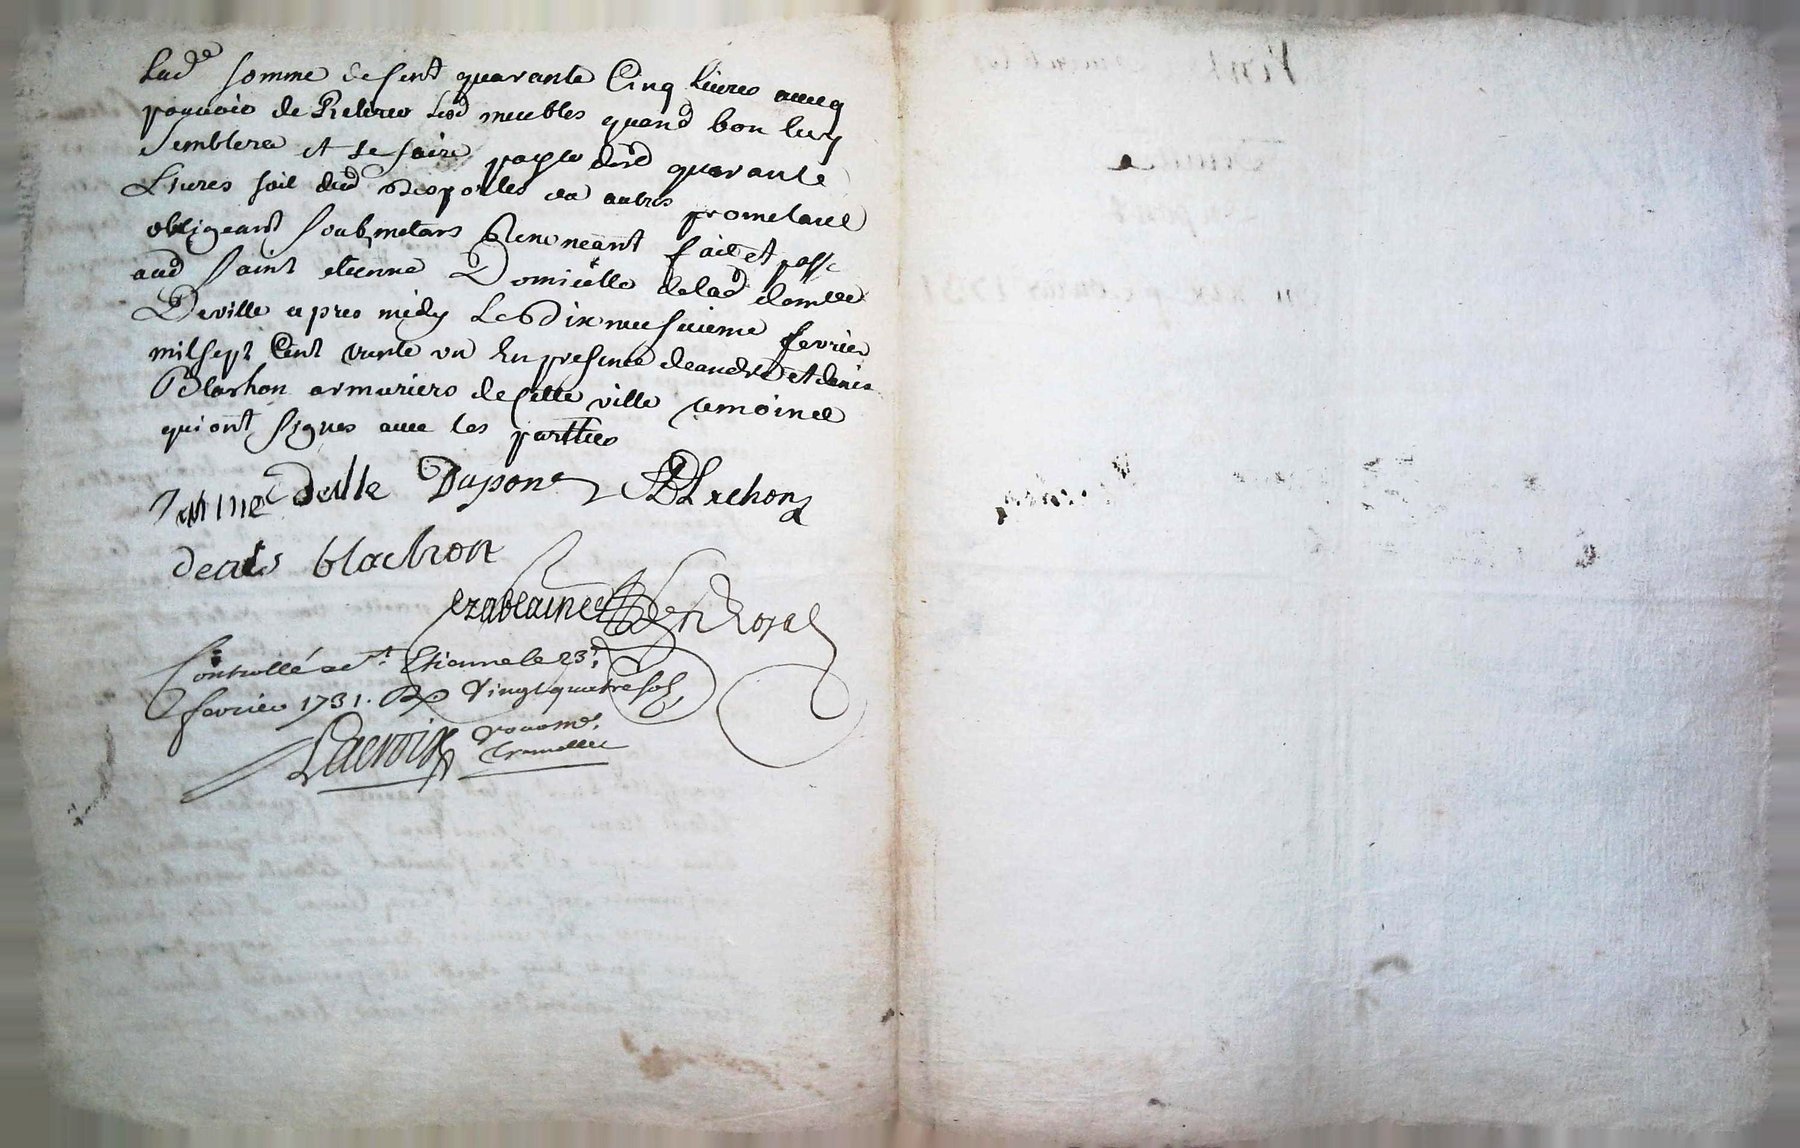 Lad.e somme de sent quarante Cinq livres avecq
pouvoir de Retirer lesd meubles quand bon luy
semblera et se faire payer desd quarante
Livres soit dud desportes ou autres prometant
obligeant soubmetans Renoncant fait et passé
aud saint etienne Domicille de lad demlle
Deville apres midy Le dix neufvieme fevrier
mil sept Cent trente un En presence de andré et denis
Blachon armuriers de cette ville temoins
qui ont signes avec les partties
deville Dupont A Blachon
denis blachon
Controllé a St. Etienne le 23.
fevrier 1731. Rx vingt quatre sols
Lacroix